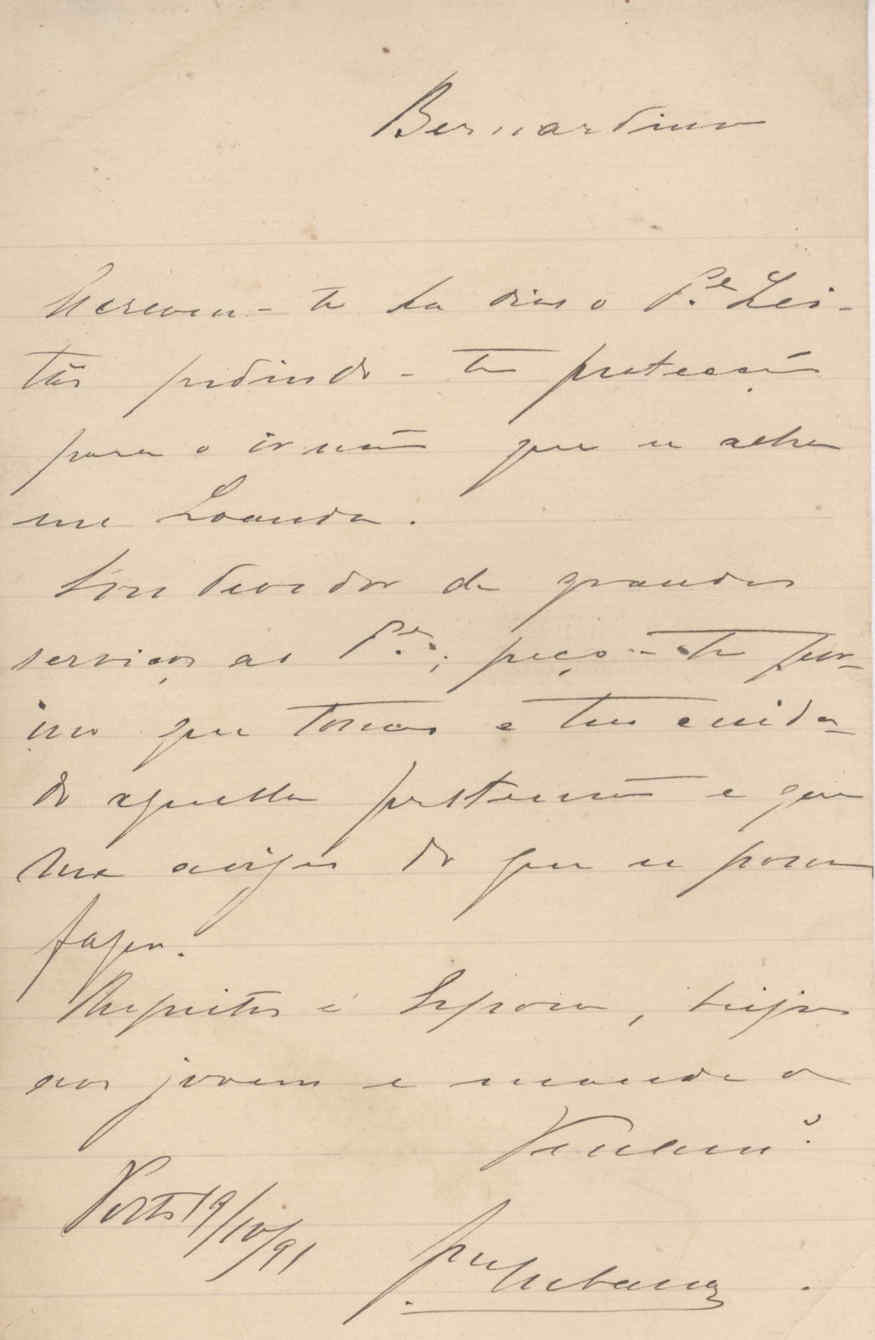 Bernardino
Escreveu-te ha dias o P.e Lei-
tão pedindo-te protecção
para o irmão que se acha
em Loanda.
Sou devedor de grandes
serviços ao P.e; peço-te por
isso que tomes a teu cuida-
do aquella pretensão e que
me avises do que se possa
fazer.
Respeitos á Esposa, beijos
aos jovens e manda o
Porto 19/10/91